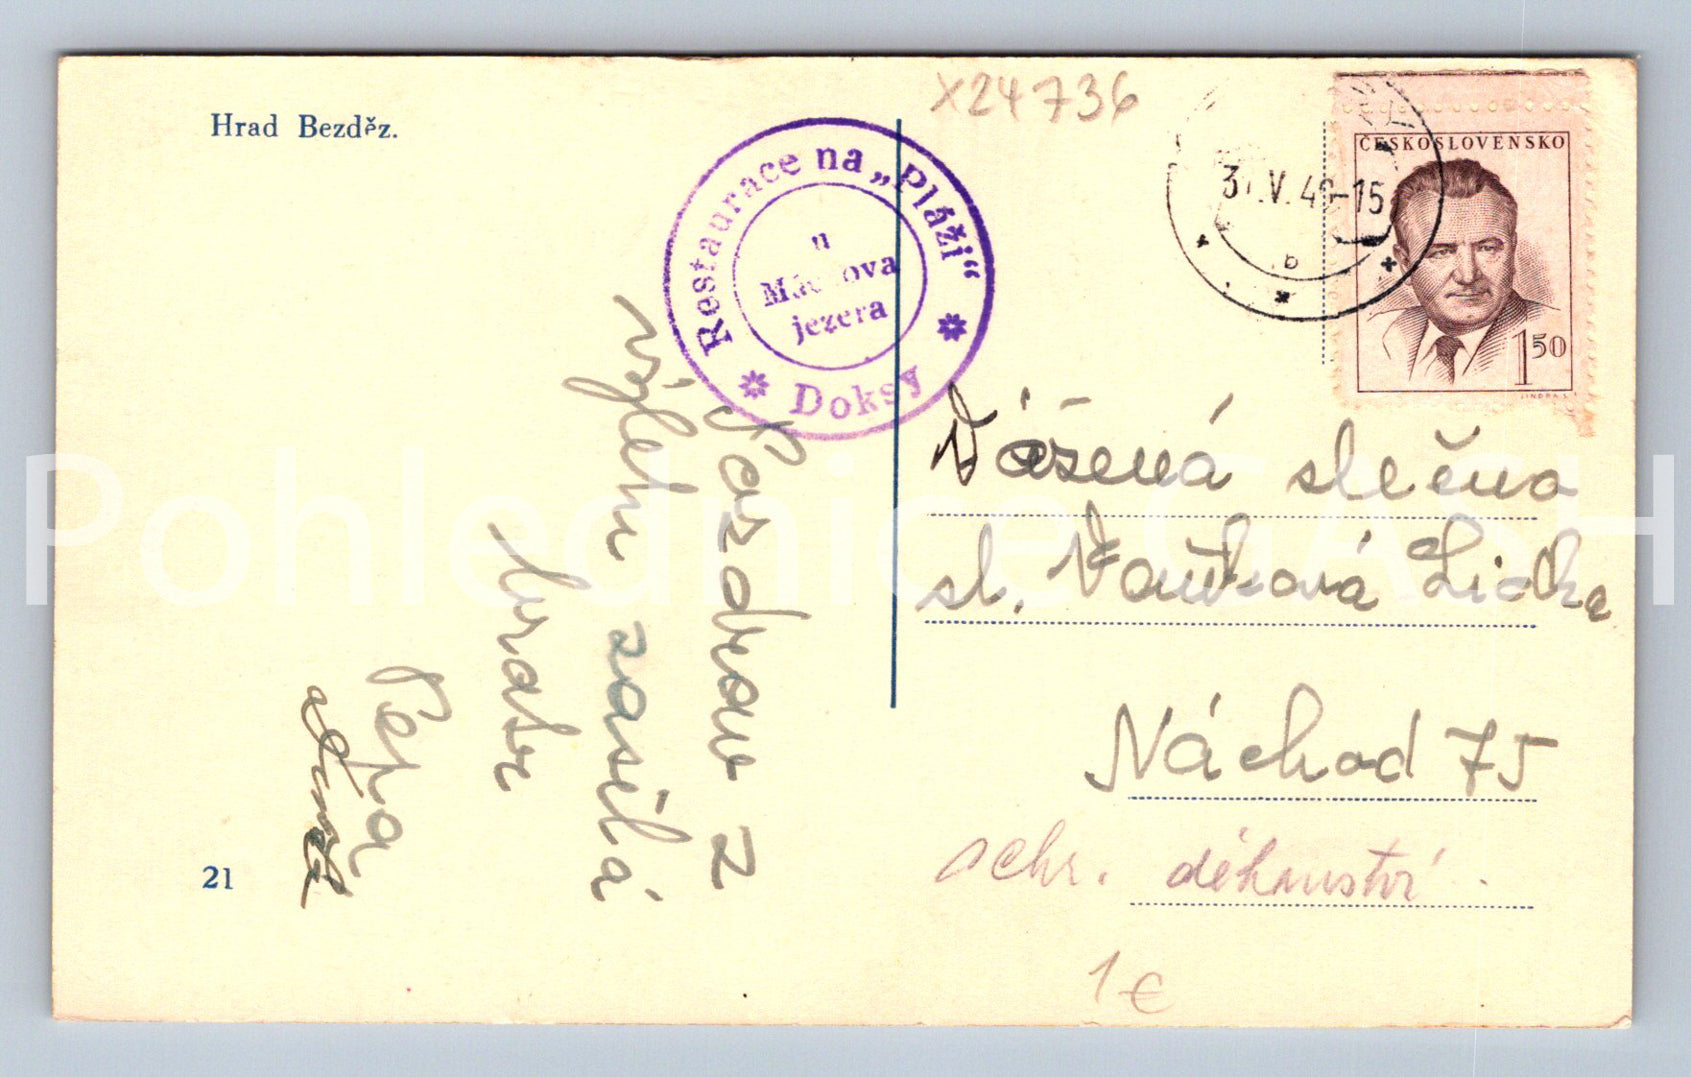 Hrad Bezděz.
X24736
Restaurace na „Pláži“
u
Máchova
jezera
Doksy
ČESKOSLOVENSKO
1 50
V. 49-15
b
Pozdrav z
výletu zasílá
bratr
Pepa
a
Vážená slečna
sl. Vaňková Lidka
Náchod 75
schr. děkanství
1 €
21
Pohlednice GASH